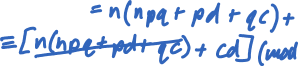 = n(npq + pd + qc) +
≡ [n(npq + pd + qc) + cd] (mod